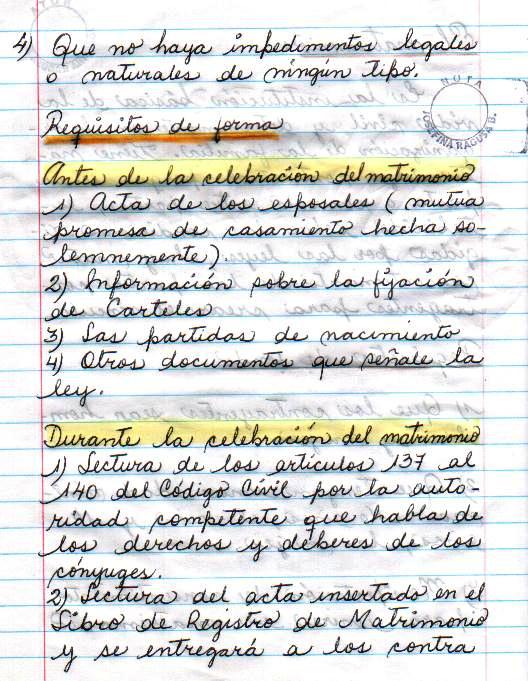 4) Que no haya impedimentos legales
o naturales de ningún tipo.
NOTA
JOSEFINA RAGUSA B.
Requisitos de forma
Antes de la celebración del matrimonio
1) Acta de los esposales (mutua
promesa de casamiento hecha so-
lemnemente).
2) Información sobre la fijación
de Carteles
3) Las partidas de nacimiento
4) Otros documentos que señale la
ley.
Durante la celebración del matrimonio
1) Lectura de los artículos 137 al
140 del Código Civil por la auto-
ridad competente que habla de
los derechos y deberes de los
cónyuges.
2) Lectura del acta insertado en el
Libro de Registro de Matrimonio
y se entregará a los contra